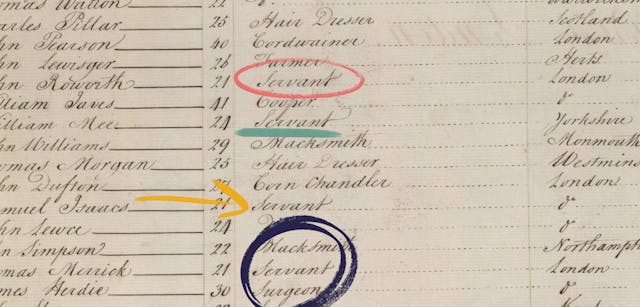 omas Watton 22
Charles Pillar 25 Hair Dresser Scotland
hn Pearson 40 Cordwainer London
hn 26 Farmer Herts
hn Roworth 21 Servant London
illiam 41 Cooper do
illiam Mee 24 Servant Yorkshire
hn Williams 29 Blacksmith Monmouth
homas Morgan 25 Hair Dresser Westmins
hn Dufton 27 Corn Chandler London
muel Isaacs 21 Servant do
hn 24 do do
hn Simpson 22 Blacksmith Northamph
omas Merrick 21 Servant London
mes Herdie 30 Surgeon do